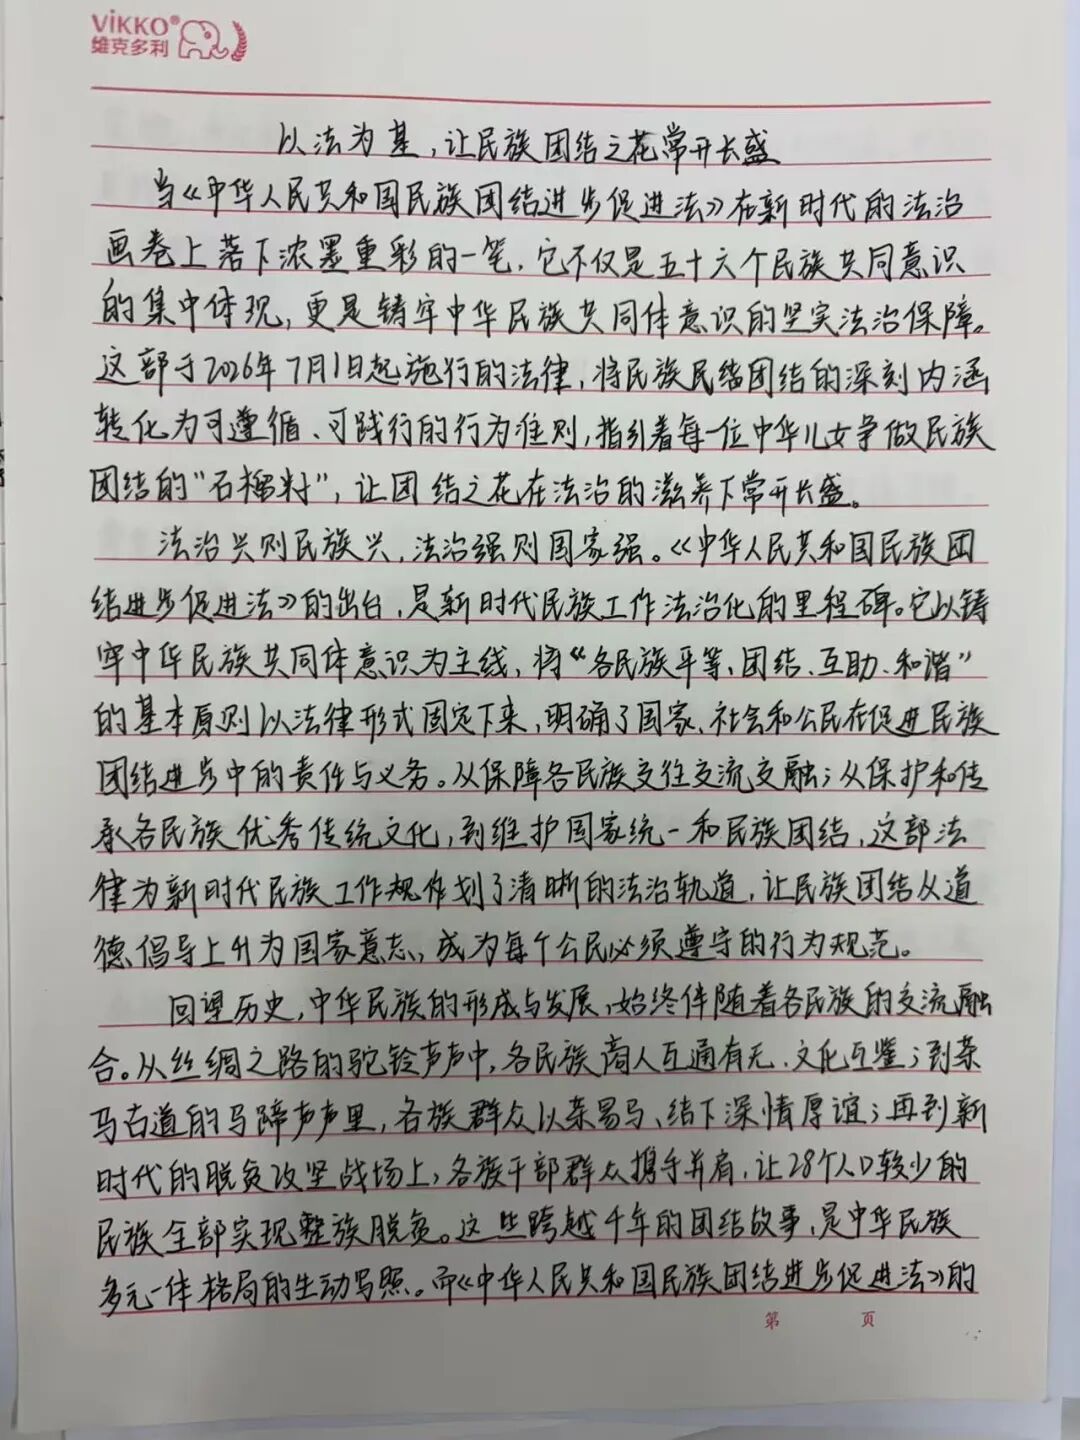 VIKKO®
维克多利
以法为基,让民族团结之花常开长盛
当《中华人民共和国民族团结进步促进法》在新时代的法治
画卷上落下浓墨重彩的一笔,它不仅是五十六个民族共同意识
的集中体现,更是铸牢中华民族共同体意识的坚实法治保障。
这部于2026年7月1日起施行的法律,将民族团结的深刻内涵
转化为可遵循、可践行的行为准则,指引着每一位中华儿女争做民族
团结的"石榴籽",让团结之花在法治的滋养下常开长盛。
法治兴则民族兴,法治强则国家强。《中华人民共和国民族团
结进步促进法》的出台,是新时代民族工作法治化的里程碑。它以铸
牢中华民族共同体意识为主线,将"各民族平等、团结、互助、和谐"
的基本原则以法律形式固定下来,明确了国家、社会和公民在促进民族
团结进步中的责任与义务。从保障各民族交往交流交融;从保护和传
承各民族优秀传统文化,到维护国家统一和民族团结,这部法
律为新时代民族工作规作划了清晰的法治轨道,让民族团结从道
德倡导上升为国家意志,成为每个公民必须遵守的行为规范。
回望历史,中华民族的形成与发展,始终伴随着各民族的交流融
合。从丝绸之路的驼铃声声中,各民族商人互通有无、文化互鉴;到茶
马古道的马蹄声声里,各族群众以茶易马、结下深情厚谊;再到新
时代的脱贫攻坚战场上,各族干部群众携手并肩,让28个人口较少的
民族全部实现整族脱贫。这些跨越千年的团结故事,是中华民族
多元一体格局的生动写照。而《中华人民共和国民族团结进步促进法》的
第 页